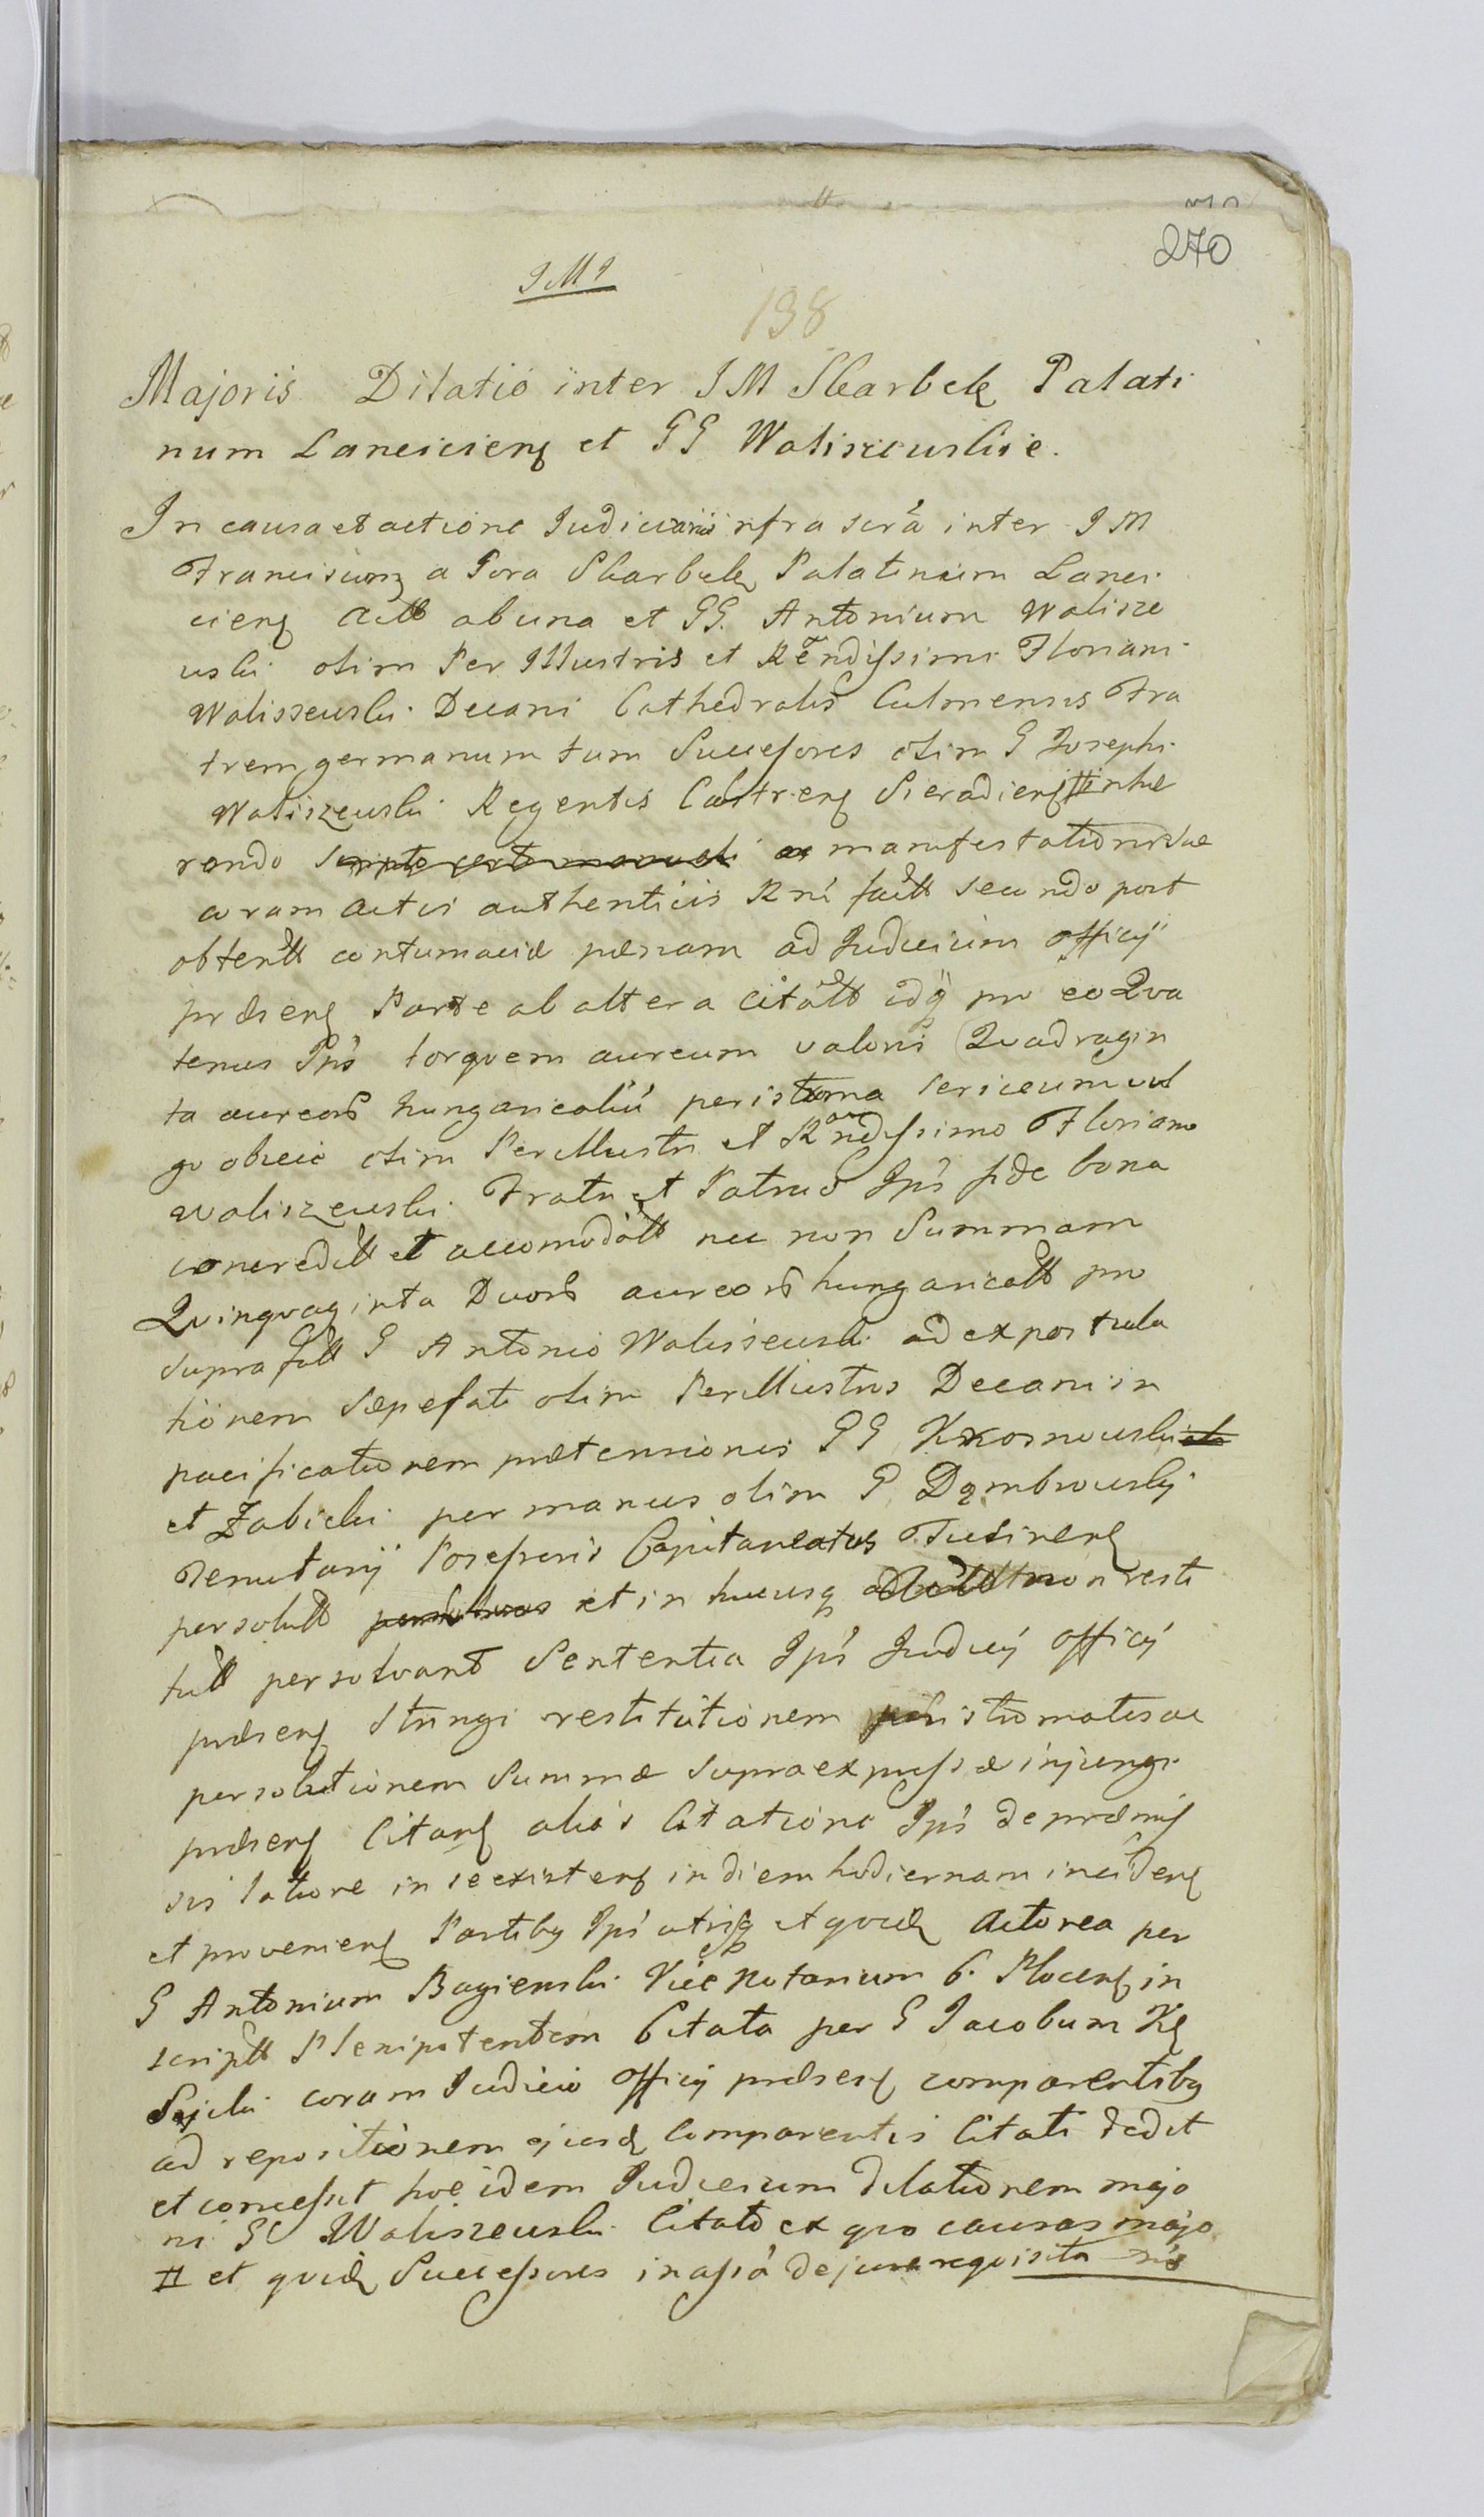 270
J M J
198
Majoris Dilatio inter J M Skarbek Palati
num Lanciciens et GG Waliszewskie.
In causa et actione Judiciariis infra scrā inter J M
Franciscum a Gora Skarbek Palatinum Lanci
ciens Actt ab una et GG. Antonium Walisze
wski olim Per Illustris et Rendissimi Floriani
Waliszewski Decani Cathedralis Culmensis Fra
trem germanum tum Successores olim G Josephi
Waliszewski Regentis Castrens Sieradiens # inhæ
rendo manifestationi suæ
coram Actis authenticis Rni factt secundo post
obtentt contumaciæ pænam ad Judicium officij
præsens Parte ab altera citatt idq pro eo Qva
tenus Ipsi torqvem aureum valoris Quadragin
ta aureor hungaricaliu peristroma sericeum vul
go obicie olim Perillustri et Rndissimo Floriano
Waliszewski Fratri et Patruo Ipsi fide bona
concreditt et accomodatt nec non Summam
Qvinqvaginta Duor aureor hungaricatt pro
suprafatt G Antonio Waliszewski ad expostula
tionem sæpefati olim Perillustris Decani in
pacificationem prætensionis GG Krosnowski
et Zabicki per manus olim G Dąmbrowskij
Tenutarij Possessoris Capitaneatus Tucinens
persolutt et in hucusq non resti
tutt persolvant Sententia Ipsi Judicij officij
præsens Stringi restitutionem peristromatis ac
persolutionem Summæ supra expressæ injungi
præsens Citans alias Citatione Ipsi de præmis
sis latiore in se existens in diem hodiernam incidens
et proveniens Partibus Ipsi utrisq et qvidem Actorea per
G Antonium Bagienski Vice Notarium C. Plocens in
scriptt Plenipotentem Citata per G Jacobum Kę
Sicki coram Judicio officij præsens comparentibus
ad repositionem ejusd Comparentis Citati dedit
et concessit hoc idem Judicium dilationem majo
ri GG Waliszewski Citato ex qvo causas majo
# et qvidem Successores in assia de jure reqvisita ris